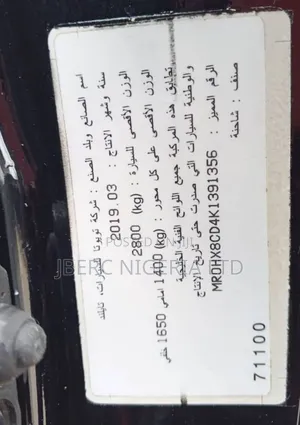 اسم الصانع وبلد الصنع : شركة تويوتا للسيارات، تايلند
سنة وشهر الانتاج : 2019.03
الوزن الأقصى للسيارة : 2800 (kg)
الوزن الأقصى على كل محور : 1400(kg) امامي 1650 خلفي
تطابق هذه المركبة جميع اللوائح الفنية الخليجية
والوطنية للسيارات التي صدرت حتى تاريخ الانتاج
الرقم المميز : MR0HX8CD4K1391356
صنف : شاحنة
71100
POSTED ON JIJI
JBERC NIGERIA LTD